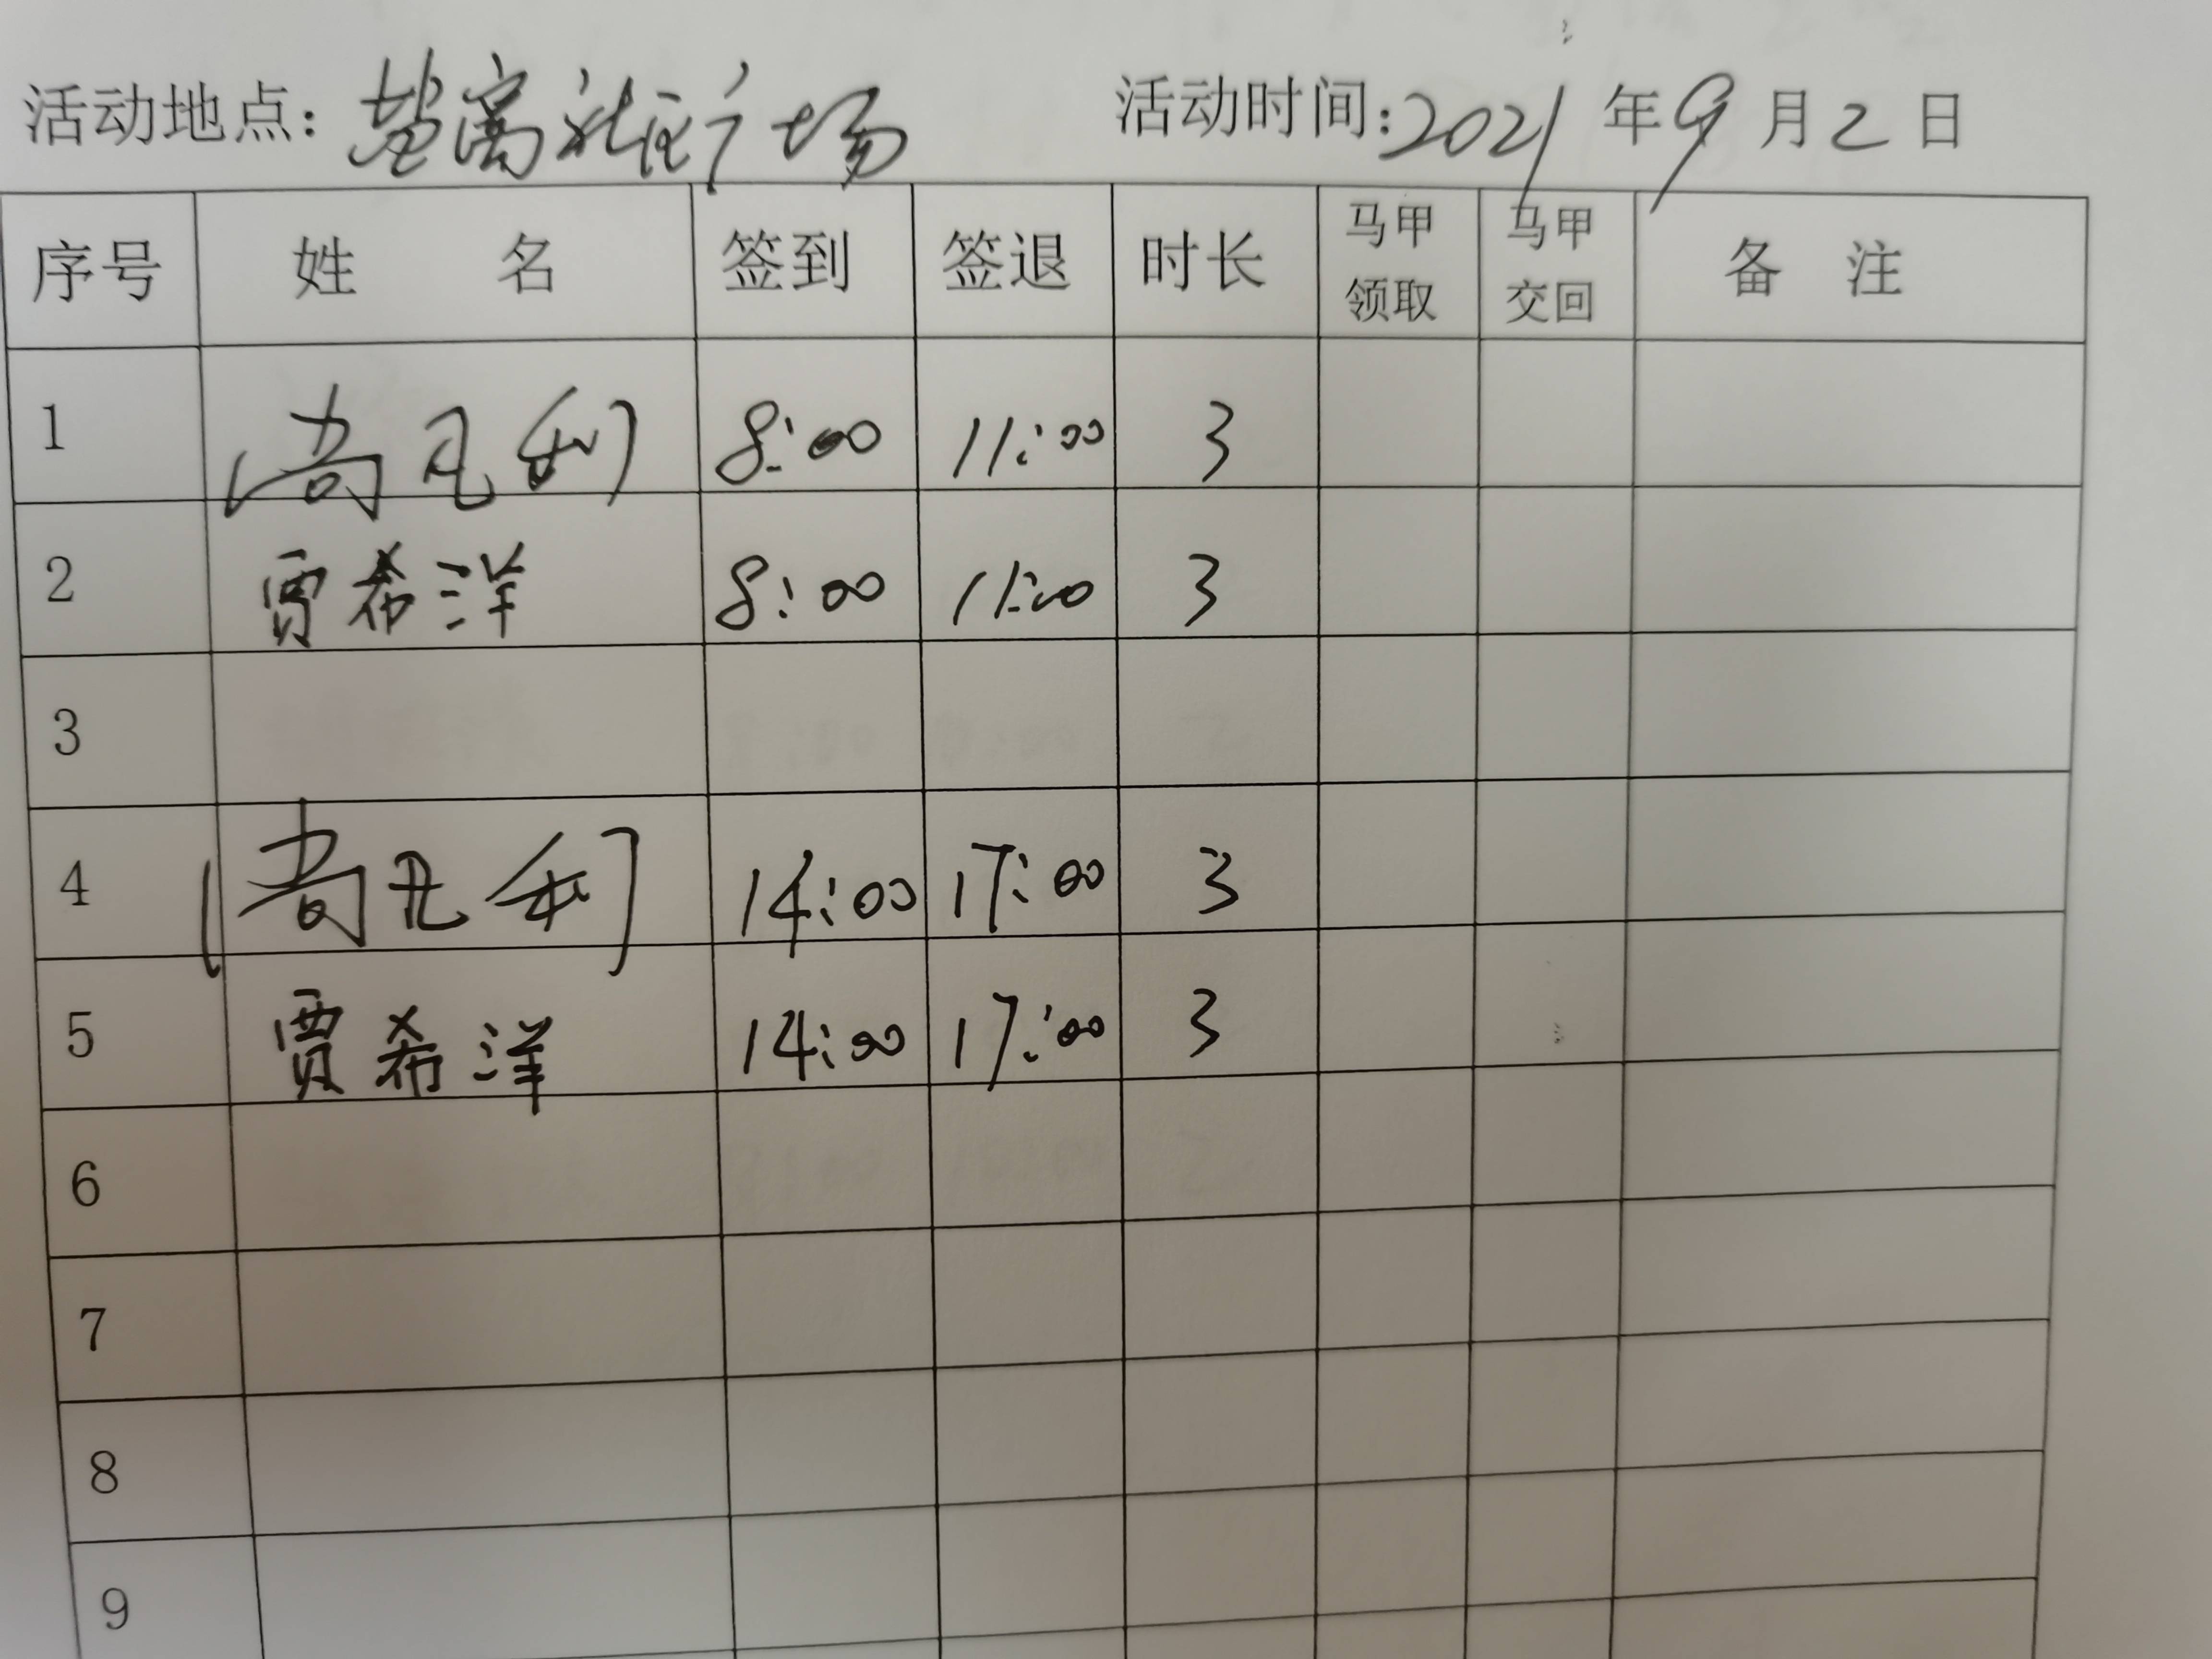 活动地点: 盐离社区广场 活动时间: 2021 年 9 月 2 日
序号 姓 名 签到 签退 时长 马甲领取 马甲交回 备 注
1 8:00 11:00 3
2 贾希洋 8:00 11:00 3
3
4 14:00 17:00 3
5 贾希洋 14:00 17:00 3
6
7
8
9